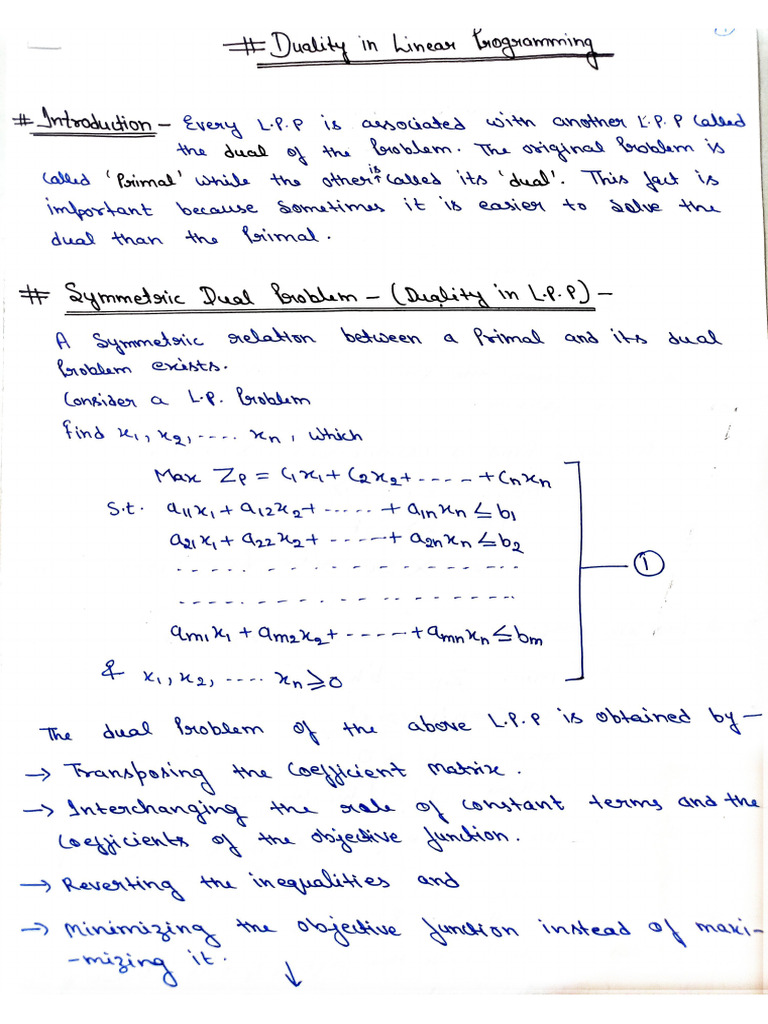 # Duality in Linear Programming
# Introduction - Every L.P.P is associated with another L.P.P called
the dual of the Problem. The original Problem is
called 'Primal' while the other is called its 'dual'. This fact is
important because sometimes it is easier to solve the
dual than the Primal.
# Symmetric Dual Problem - (Duality in L.P.P) -
A Symmetric relation between a Primal and its dual
Problem exists.
Consider a L.P. Problem
Find x₁, x₂, ---- xₙ, which
Max Zₚ = C₁x₁ + C₂x₂ + ----- + Cₙxₙ
S.t. a₁₁x₁ + a₁₂x₂ + ----- + a₁ₙxₙ ≤ b₁
a₂₁x₁ + a₂₂x₂ + ----- + a₂ₙxₙ ≤ b₂
①
aₘ₁x₁ + aₘ₂x₂ + ----- + aₘₙxₙ ≤ bₘ
& x₁, x₂, ---- xₙ ≥ 0
The dual Problem of the above L.P.P is obtained by -
→ Transposing the Coefficient Matrix.
→ Interchanging the role of constant terms and the
Coefficients of the objective function.
→ Reverting the inequalities and
→ Minimizing the objective function instead of maxi-
-mizing it. ↓